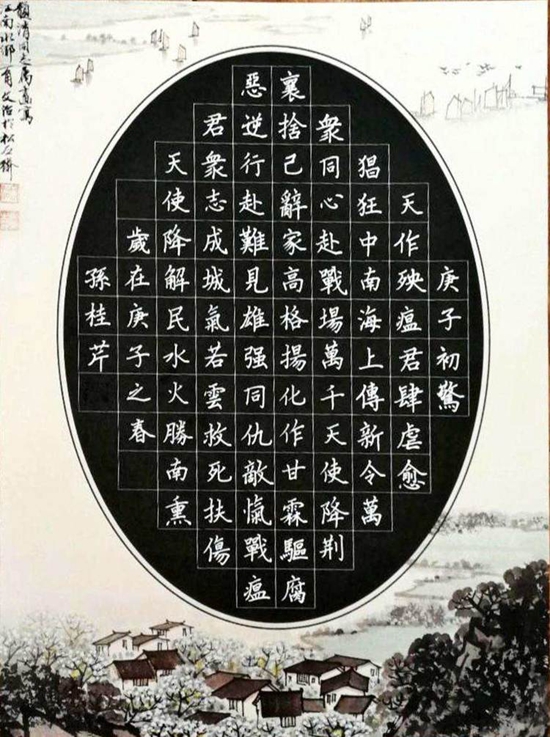 庚子初驚
天作殃瘟君肆虐愈
猖狂中南海上傳新令萬
衆同心赴戰場萬千天使降荆
襄捨己辭家高格揚化作甘霖驅腐
惡逆行赴難見雄强同仇敵愾戰瘟
君衆志成城氣若雲救死扶傷
天使降解民水火勝南熏
歲在庚子之春
孫桂芹
江南水鄉